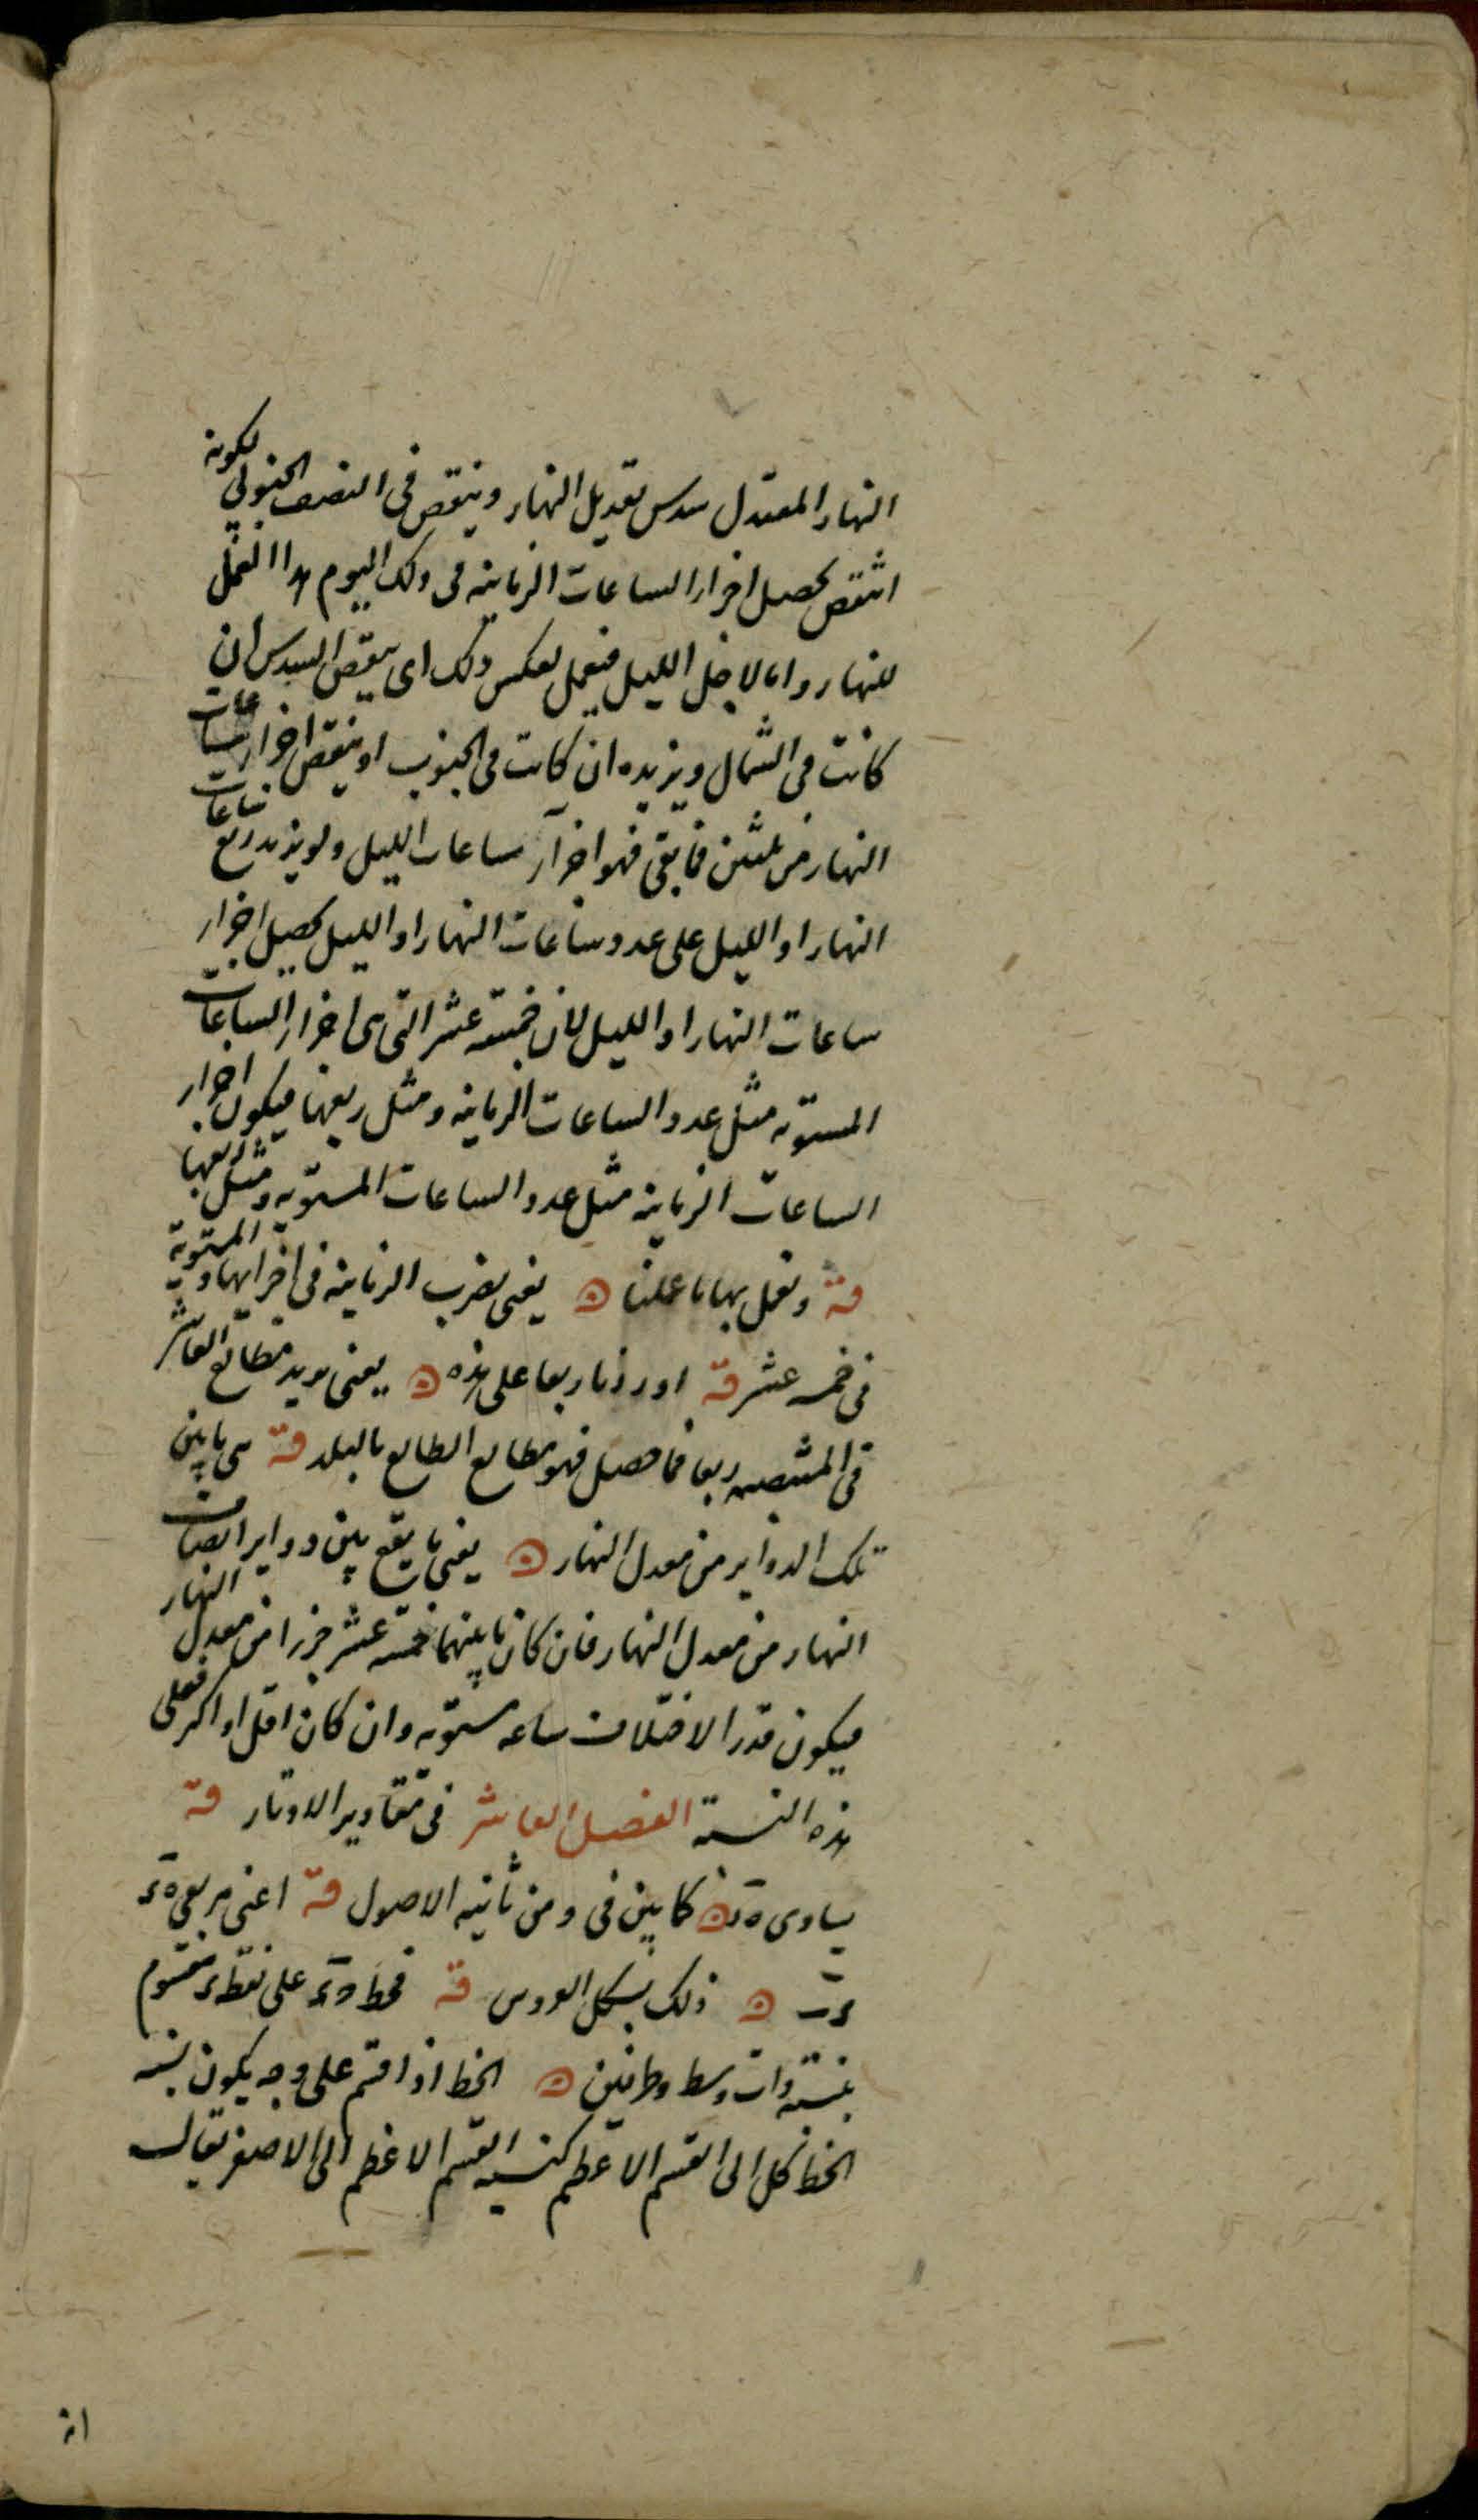 النهار المعتدل سدس تعديل النهار وينقص فى النصف الجنوبي لكونه
انقص يحصل اجزاء الساعات الزمانية فى ذلك اليوم هذا العمل
للنهار واما لاجل الليل فيعمل بعكس ذلك اى ينقص السدس ان
كانت فى الشمال ويزيده ان كانت فى الجنوب او ينقص اجزاء ساعات
النهار من ثلثين فما بقى فهو اجزاء ساعات الليل ولو يزيد ربع ساعات
النهار او الليل على عدد ساعات النهار او الليل يحصل اجزاء
ساعات النهار او الليل لان خمسة عشر التى هى اجزاء الساعات
المستوية مثل عدد الساعات الزمانية ومثل ربعها فيكون اجزاء
الساعات الزمانية مثل عدد الساعات المستوية ومثل ربعها
قه ونعمل بها ما عملنا ۞ يعنى نضرب الزمانية فى اجزايها والمستوية
فى خمسة عشر قه او زدنا ربعا على هذه ۞ يعنى يزيد مطالع العاشر
فى المنتصبه ربعا فما حصل فهو مطالع الطالع بالبلد قه هى ما بين
تلك الدواير من معدل النهار ۞ يعنى ما يقع بين دواير انصاف النهار
النهار من معدل النهار فان كان ما بينهما خمسة عشر جزءا من معدل
فيكون قدر الاختلاف ساعه مستويه وان كان اقل او اكثر فعلى
هذه النسبة الفصل العاشر فى مقادير الاوتار قه
يساوى ۞ كما بين فى و من ثانيه الاصول قه اعنى مربعى
۞ ذلك بشكل العروس قه فخط على نقطه مقسوم
بنسبة ذات وسط وطرفين ۞ الخط اذا قسم على وجه يكون نسبة
الخط كل الى القسم الاعظم كنسبة القسم الاعظم الى الاصغر يقال
انه